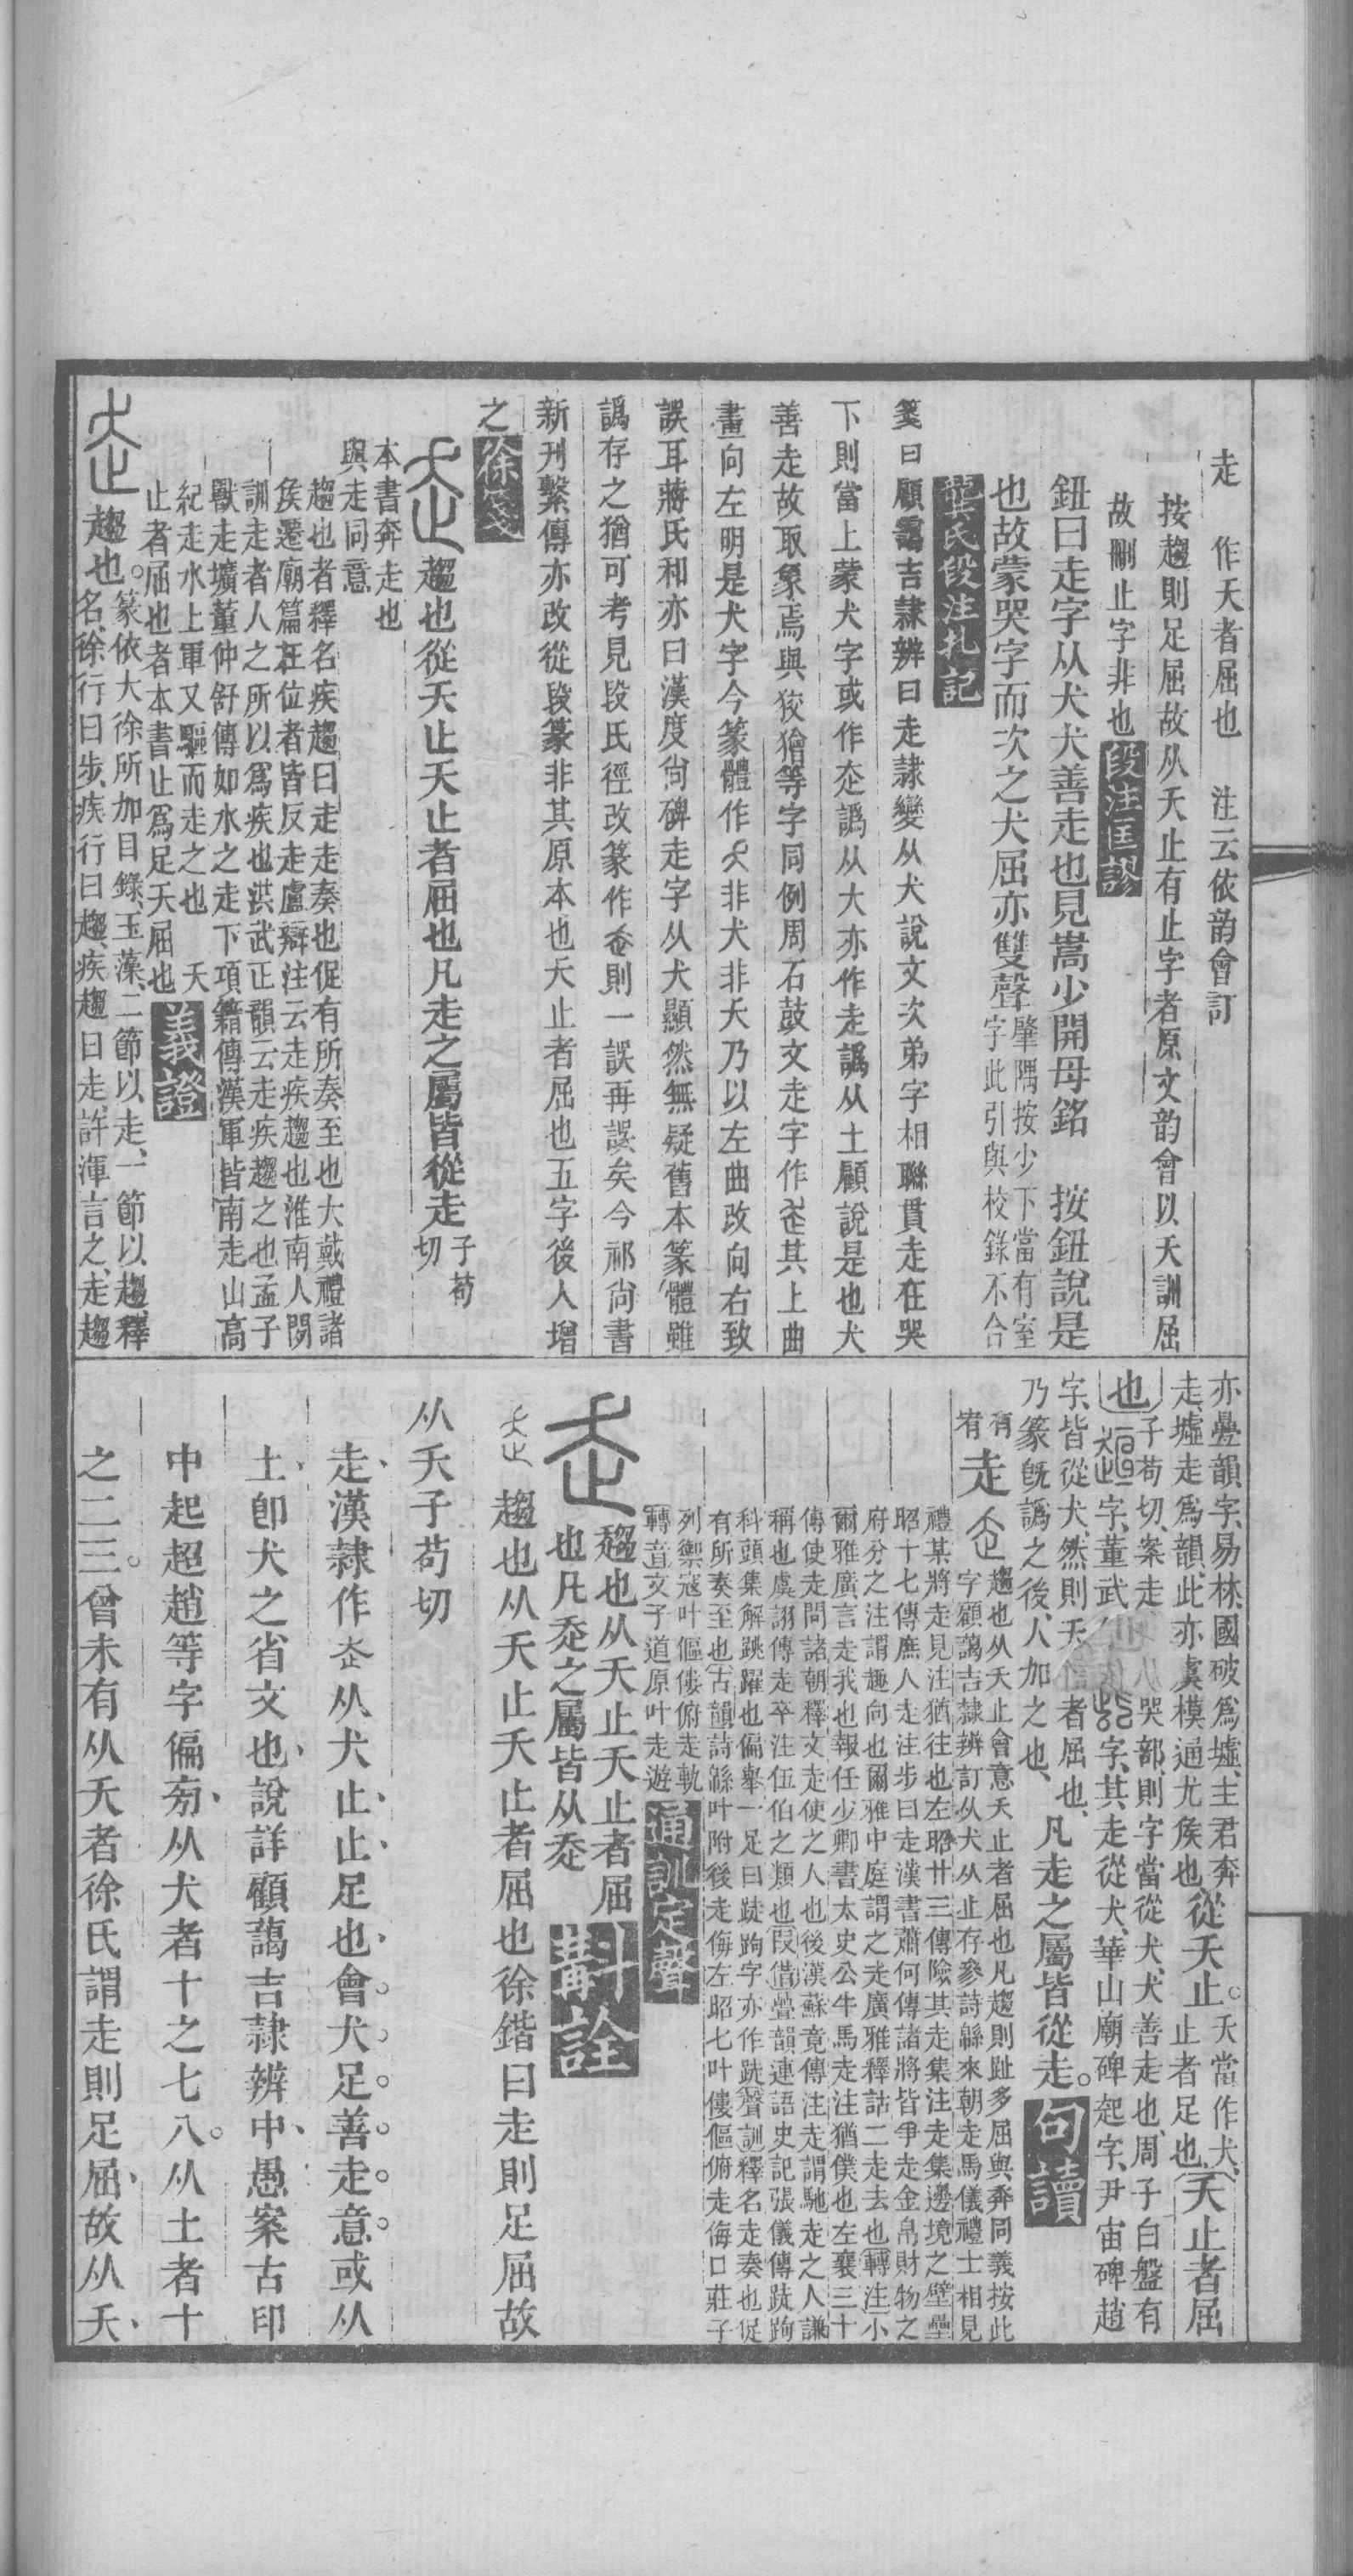 走　作夭者屈也　注云依韵會訂
按趨則足屈故从夭止有止字者原文韵會以夭訓屈
故刪止字非也段注匡謬
鈕曰走字从犬犬善走也見嵩少開母銘　按鈕說是
也故蒙哭字而次之犬屈亦雙聲
肇隅按少下當有室
字此引與校錄不合
龔氏段注札記
箋曰顧藹吉隸辨曰走隸變从犬說文次弟字相聯貫走在哭
下則當上蒙犬字或作赱譌从大亦作走譌从土顧說是也犬
善走故取象焉與狡獪等字同例周石鼓文走字作其上曲
畫向左明是犬字今篆體作非犬非夭乃以左曲改向右致
誤耳蔣氏和亦曰漢度尙碑走字从犬顯然無疑舊本篆體雖
譌存之猶可考見段氏徑改篆作則一誤再誤矣今祁尙書
新刊繫傳亦改從段篆非其原本也夭止者屈也五字後人增
之徐箋
趨也從夭止夭止者屈也凡走之屬皆從走
子苟
切
本書奔走也
與走同意
趨也者釋名疾趨曰走走奏也促有所奏至也大戴禮諸
矦遷廟篇在位者皆反走盧辯注云走疾趨也淮南人閒
訓走者人之所以爲疾也洪武正韻云走疾趨之也孟子
獸走壙董仲舒傳如水之走下項籍傳漢軍皆南走山高
紀走水上軍又驅而走之也　夭
止者屈也者本書止爲足夭屈也義證
趨也。
篆依大徐所加目錄、玉藻、二節以走、一節以趨、釋
名、徐行曰步、疾行曰趨、疾趨曰走、許渾言之、走趨
亦疊韻字、易林、國破爲墟、主君奔
走、墟走爲韻、此亦虞模通尤矦也、
從夭止。
夭當作犬、
止者足也、
夭止者屈
也
子苟切、案走哭部、則字當從犬、犬善走也、周子白盤有
字、董武字、其走從犬、華山廟碑起字、尹宙碑趙
字、皆從犬、然則夭者屈也、
乃篆旣譌之後、人加之也、
凡走之屬皆從走。句讀
有
宥
走
趨也从夭止會意夭止者屈也凡趨則趾多屈與奔同義按此
字顧藹吉隸辨訂从犬从止存參詩緜來朝走馬儀禮士相見
禮某將走見注猶往也左昭廿三傳險其走集注走集邊境之壁壘
昭十七傳庶人走注步曰走漢書蕭何傳諸將皆爭走金帛財物之
府分之注謂趣向也爾雅中庭謂之走廣雅釋詁二走去也轉注小
爾雅廣言走我也報任少卿書太史公牛馬走注猶僕也左襄三十
傳使走問諸朝釋文走使之人也後漢蘇竟傳注走謂馳走之人謙
稱也虞詡傳走卒注伍伯之類也叚借疊韻連語史記張儀傳跿跔
科頭集解跳躍也偏舉一足曰跿跔字亦作䟰聲訓釋名走奏也促
有所奏至也古韻詩緜叶附後走侮左昭七叶僂傴俯走侮口莊子
列禦寇叶傴僂俯走軌
轉音文子道原叶走遊
通訓定聲
趨也从夭止夭止者屈
也凡走之屬皆从走
斠詮
趨也从夭止夭止者屈也徐鍇曰走則足屈故
从夭子苟切
走、漢隸作从犬止、止、足也、會。犬。足。善。走。意。或从
土、卽犬之省文也、說詳顧藹吉隸辨中、愚案古印
中起超趙等字偏旁、从犬者十之七八。从土者十
之二三。曾未有从夭者徐氏謂走則足屈、故从夭、